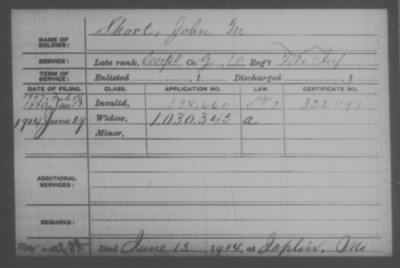 NAME OF SOLDIER: Short, John M.
SERVICE: Late rank, Corpl Co. G, 10 Reg't Inf
TERM OF SERVICE: Enlisted , 1 Discharged , 1
DATE OF FILING. CLASS. APPLICATION NO. LAW. CERTIFICATE NO.
1880, Jan Invalid, 338,660
1914 June 29 Widow, 1,030,345 a
Minor,
ADDITIONAL SERVICES:
REMARKS:
Died June 15, 1914, at Joplin, Mo